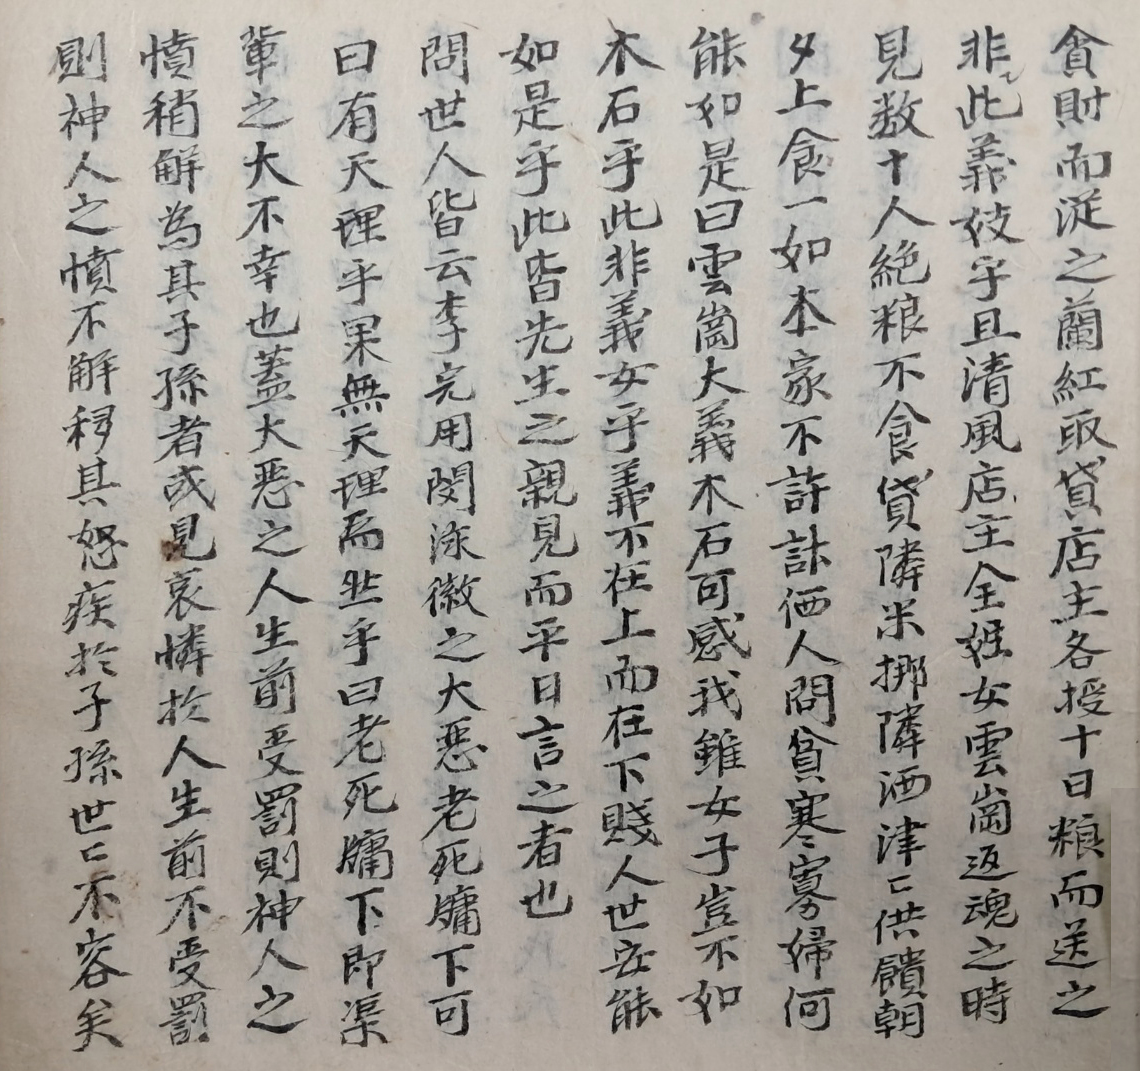 貪財而從之蘭紅取貸店主各授十日粮而送之
非此義妓乎且清風店主全姓女雲崗返魂之時
見数十人絶粮不食貸隣米挪隣洒津〻供饋朝
夕上食一如本家不許計価人問貧寒寡婦何
能如是曰雲崗大義木石可感我雖女子豈不如
木石乎此非義女乎義不在上而在下賤人世安能
如是乎此皆先生之親見而平日言之者也
問世人皆云李完用閔泳徽之大惡老死牖下可
曰有天理乎果無天理而然乎曰老死牖下即渠
輩之大不幸也蓋大惡之人生前受罰則神人之
憤稍解為其子孫者或見哀憐於人生前不受罰
則神人之憤不解移其怒疾於子孫世〻不容矣